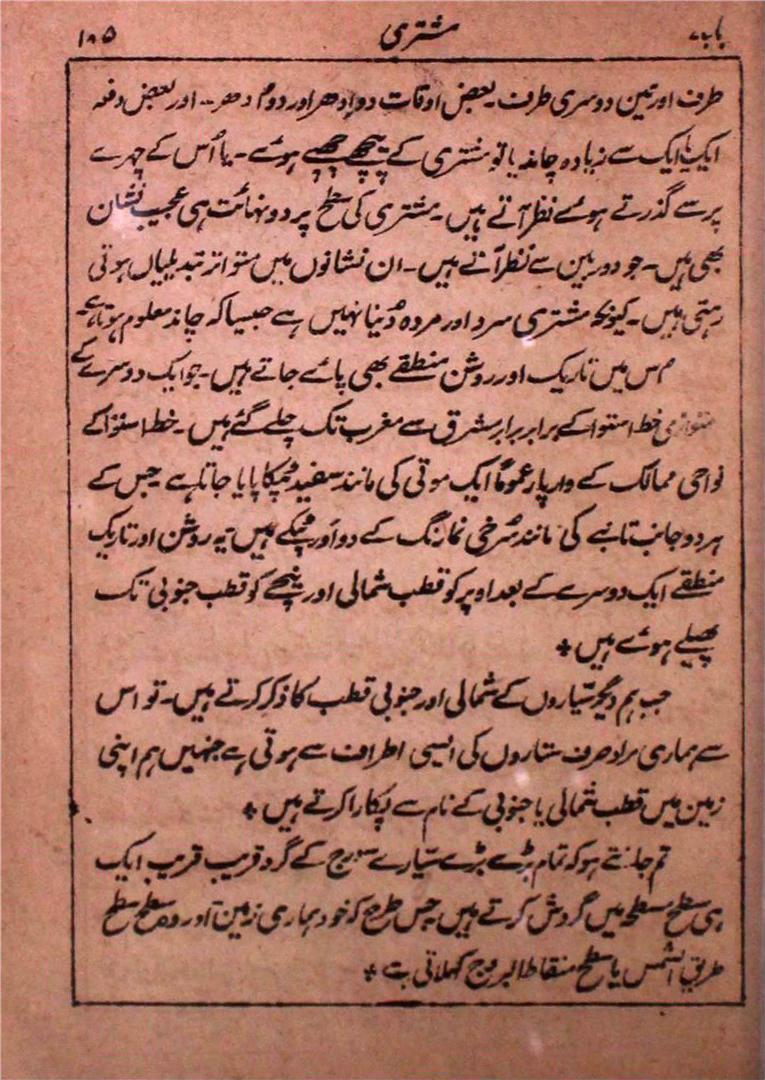 باب ۷ مشتری ۱۰۵
طرف اور تین دوسری طرف۔ بعض اوقات دو ادھر اور دو ادھر۔۔ اور بعض دفعہ
ایک یا ایک سے زیادہ چاند یا تو مشتری کے پیچھے چھپے ہوئے۔ یا اُس کے چہرے
پر سے گذرتے ہوئے نظر آتے ہیں۔ مشتری کی سطح پر دو نہائت ہی عجیب نشان
بھی ہیں۔ جو دوربین سے نظر آتے ہیں۔ ان نشانوں میں متواتر تبدیلیاں ہوتی
رہتی ہیں۔ کیونکہ مشتری سرد اور مردہ دُنیا نہیں ہے جیسا کہ چاند معلوم ہوتا ہے۔
اس میں تاریک اور روشن منطقے بھی پائے جاتے ہیں۔ جو ایک دوسرے کے
متوازی خط استوا کے برابر برابر مشرق سے مغرب تک چلے گئے ہیں۔ خط استوا کے
نواحی ممالک کے وار پار عموماً ایک موتی کی مانند سفید پٹکا پایا جاتا ہے جس کے
ہر دو جانب تانبے کی مانند سُرخی نما رنگ کے دو اَور پٹکے ہیں یہ روشن اور تاریک
منطقے ایک دوسرے کے بعد اوپر کو قطب شمالی اور نیچے کو قطب جنوبی تک
پھیلے ہوئے ہیں *
جب ہم دیگر سیّاروں کے شمالی اور جنوبی قطب کا ذکر کرتے ہیں۔ تو اس
سے ہماری مراد صرف ستاروں کی ایسی اطراف سے ہوتی ہے جنہیں ہم اپنی
زمین میں قطب شمالی یا جنوبی کے نام سے پکارا کرتے ہیں *
تم جانتے ہو کہ تمام بڑے بڑے سیّارے سورج کے گرد قریب قریب ایک
ہی سطح مسطح میں گردش کرتے ہیں جس طرح کہ خود ہماری زمین اور وہ سطح مسطح
طریق الشمس یا سطح منقاطالبروج کہلاتی ہے *